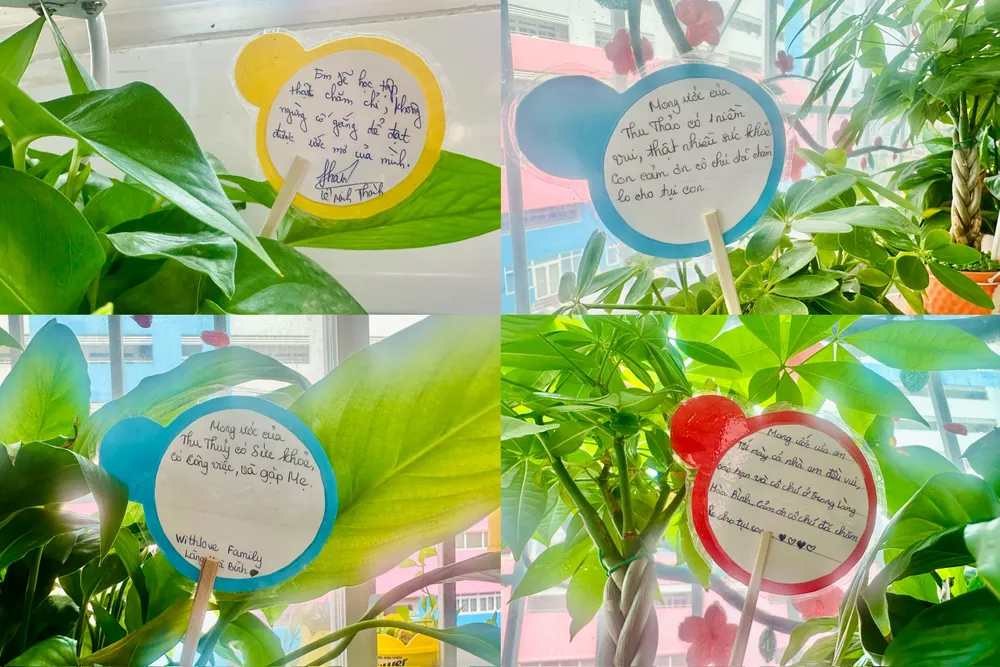 Em sẽ học tập
thật chăm chỉ, không
ngừng cố gắng để đạt
được ước mơ của mình.
Lê Minh Thành
Mong ước của
Thu Thảo có 1 niềm
vui, thật nhiều sức khỏe
Con cảm ơn cô chú đã chăm
lo cho tụi con.
Mong ước của
Thu Thủy có sức khỏe,
có công việc, và gặp Mẹ.
Withlove Family
Làng Hoà Bình
Mong ước của em
Tết này cả nhà em đều vui,
các bạn và cô chú ở trong Làng
Hòa Bình. Cảm ơn cô chú đã chăm
lo cho tụi con